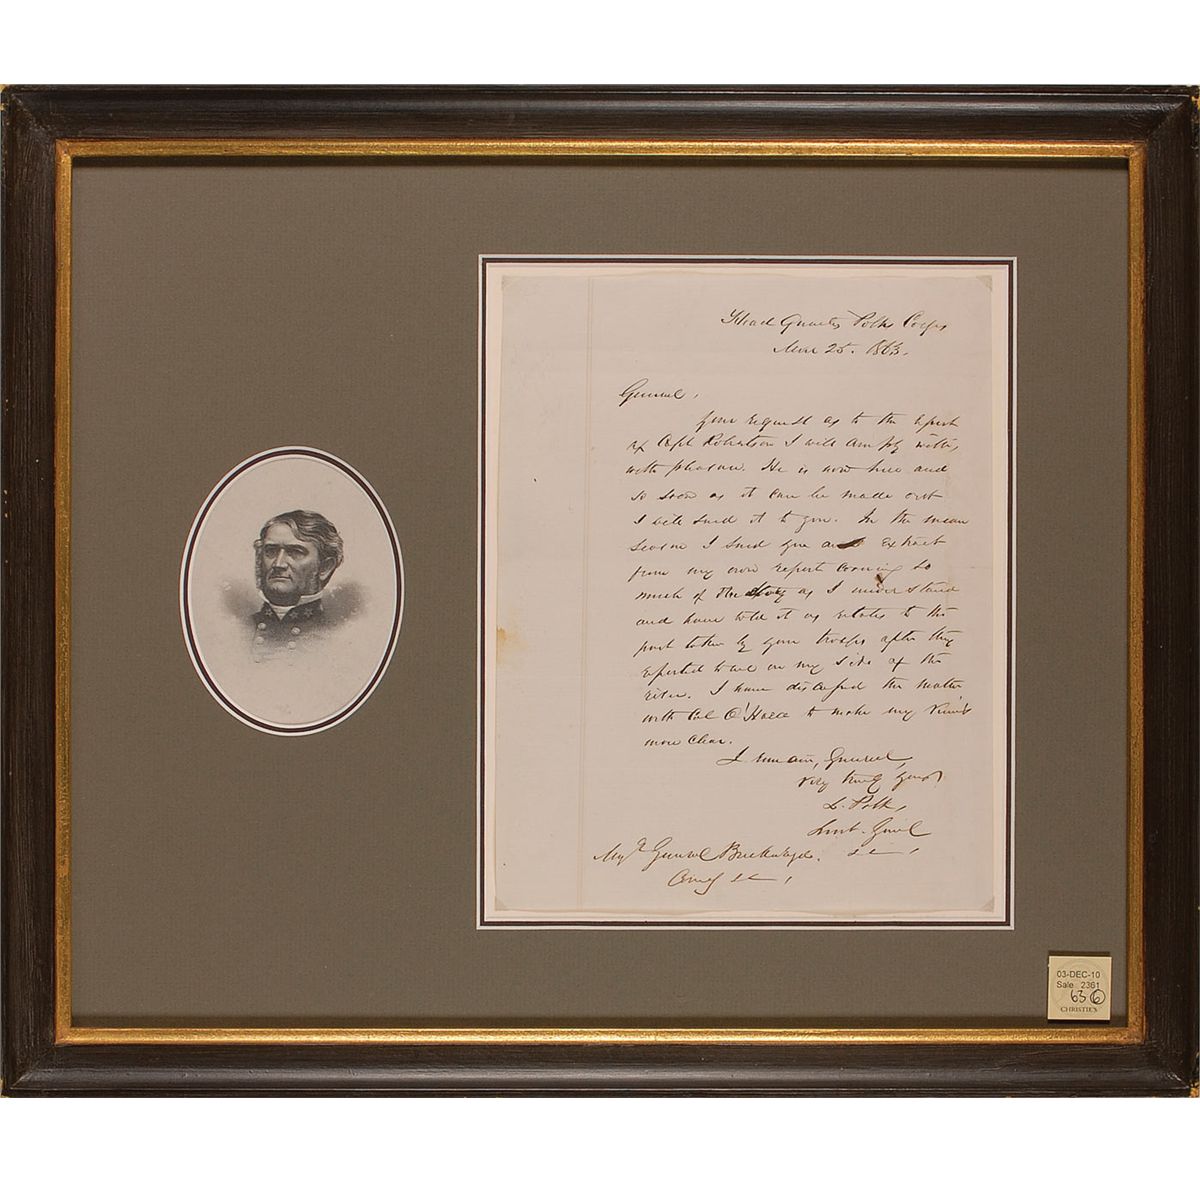 Head Quarters Polks Corps
Mar 25. 1863.
General,
Your request as to the report
of Capt Robertson I will comply with,
with pleasure. He is now here and
so soon as it can be made out
I will send it to you. In the mean
season I send you an extract
from my own report covering so
much of the story as I understand
and have told it as relates to the
part taken by your troops after they
reported to me on my side of the
river. I have discussed the matter
with Col O'Hara to make my views
more clear.
I remain, General,
very truly yours
L. Polk,
Lieut. Genl
Maj General Breckenridge.
Comdg
03-DEC-10
Sale 2361
63 6
CHRISTIE'S